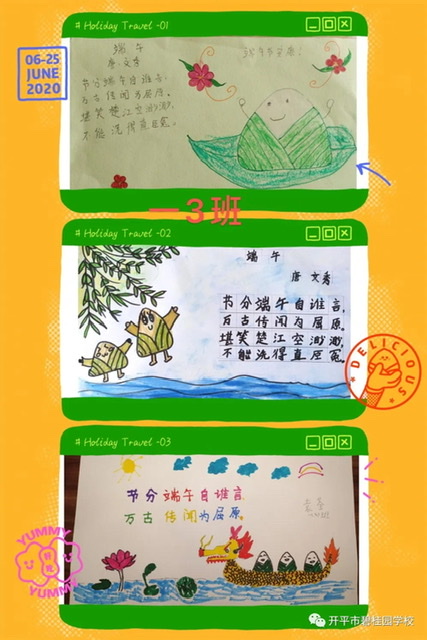 # Holiday Travel -01
06-25
JUNE
2020
端 午
唐·文秀
节分端午自谁言,
万古传闻为屈原。
堪笑楚江空渺渺,
不能洗得直臣冤。
端午节安康!
一3班
# Holiday Travel -02
端 午
唐 文秀
节分端午自谁言,
万古传闻为屈原。
堪笑楚江空渺渺,
不能洗得直臣冤。
DELICIOUS
# Holiday Travel -03
节分端午自谁言
万古传闻为屈原。
YUMMY
YUMMY
开平市碧桂园学校